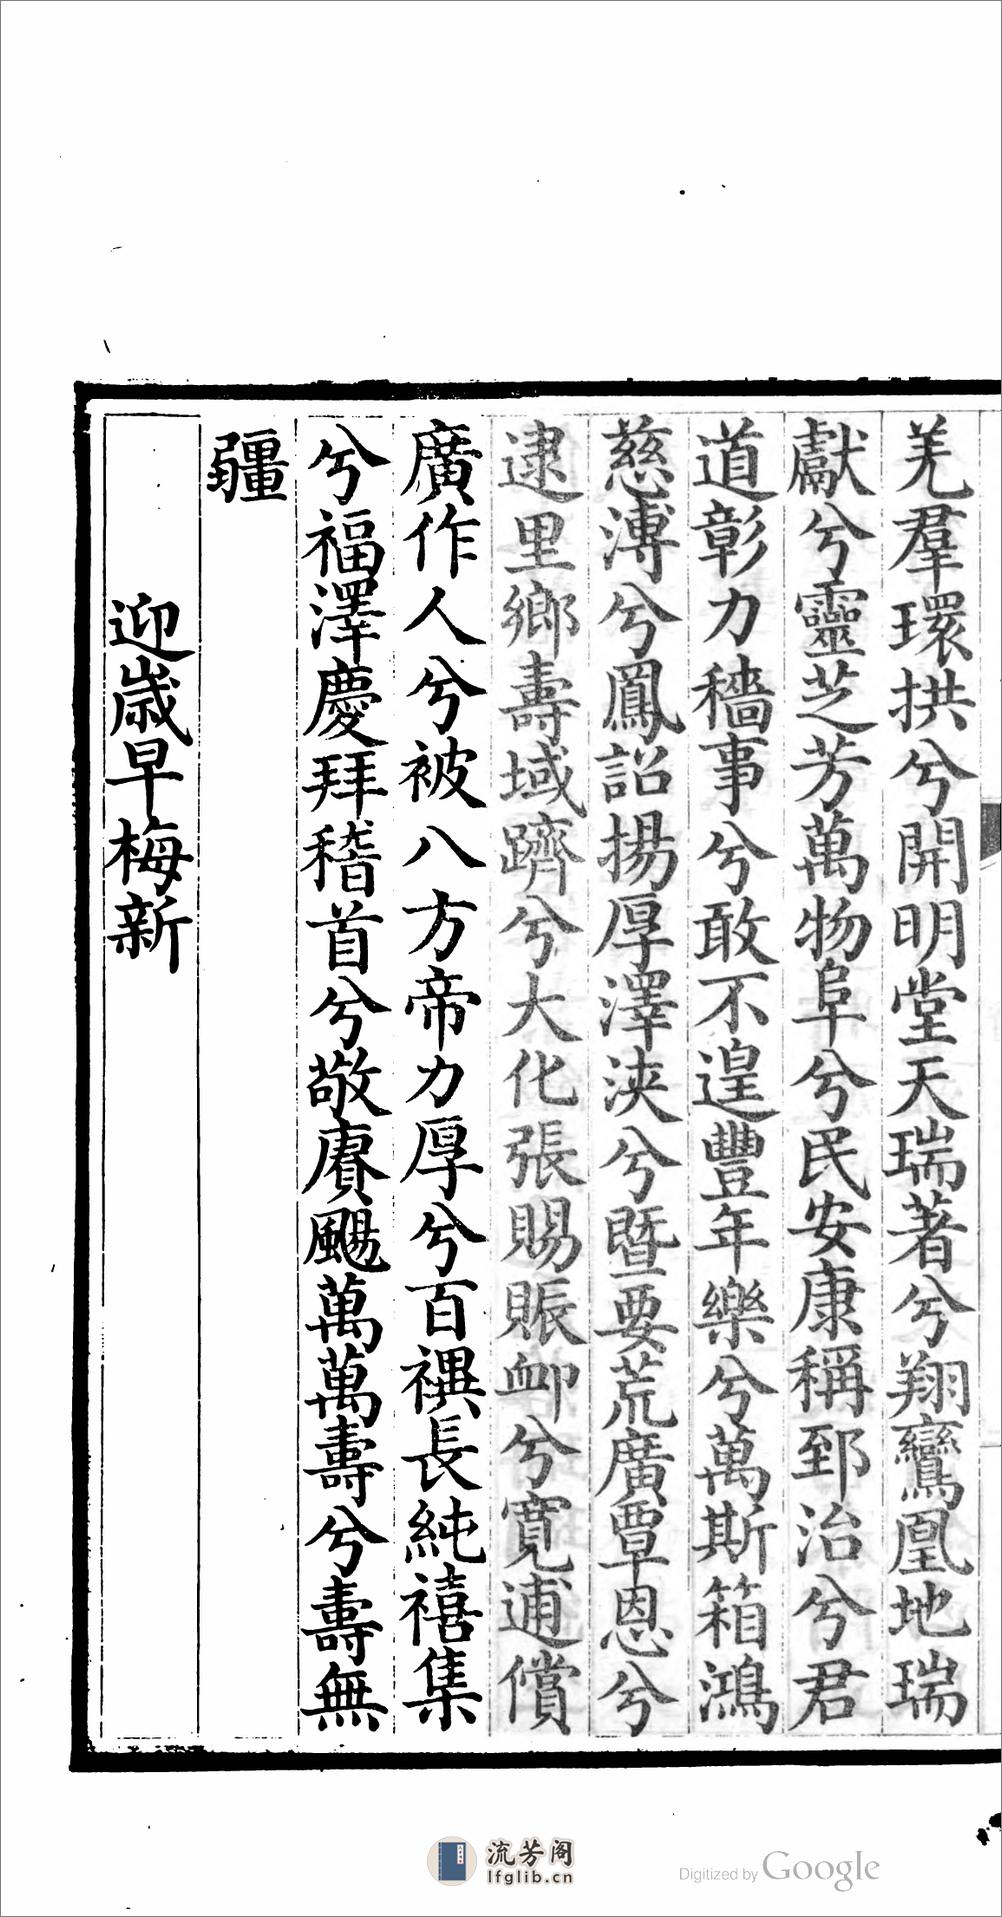 羌羣環拱兮開明堂天瑞著兮翔鸞凰地瑞
獻兮靈芝芳萬物阜兮民安康稱郅治兮君
道彰力穡事兮敢不遑豐年樂兮萬斯箱鴻
慈溥兮鳳詔揚厚澤浹兮暨要荒廣覃恩兮
逮里鄉壽域躋兮大化張賜賑卹兮寬逋償
廣作人兮被八方帝力厚兮百禩長純禧集
兮福澤慶拜稽首兮敬賡颺萬萬壽兮壽無
疆
迎歲早梅新
流芳阁
lfglib.cn
Digitized by Google